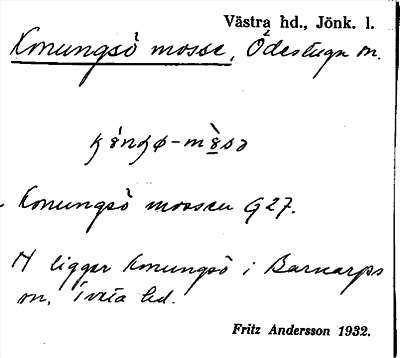 Västra hd., Jönk. l.
Konungsö mosse, Ödestugu sn.
Konungsö mossen G27.
H ligger Konungsö i Barnarps
sn. Tveta hd.
Fritz Andersson 1932.